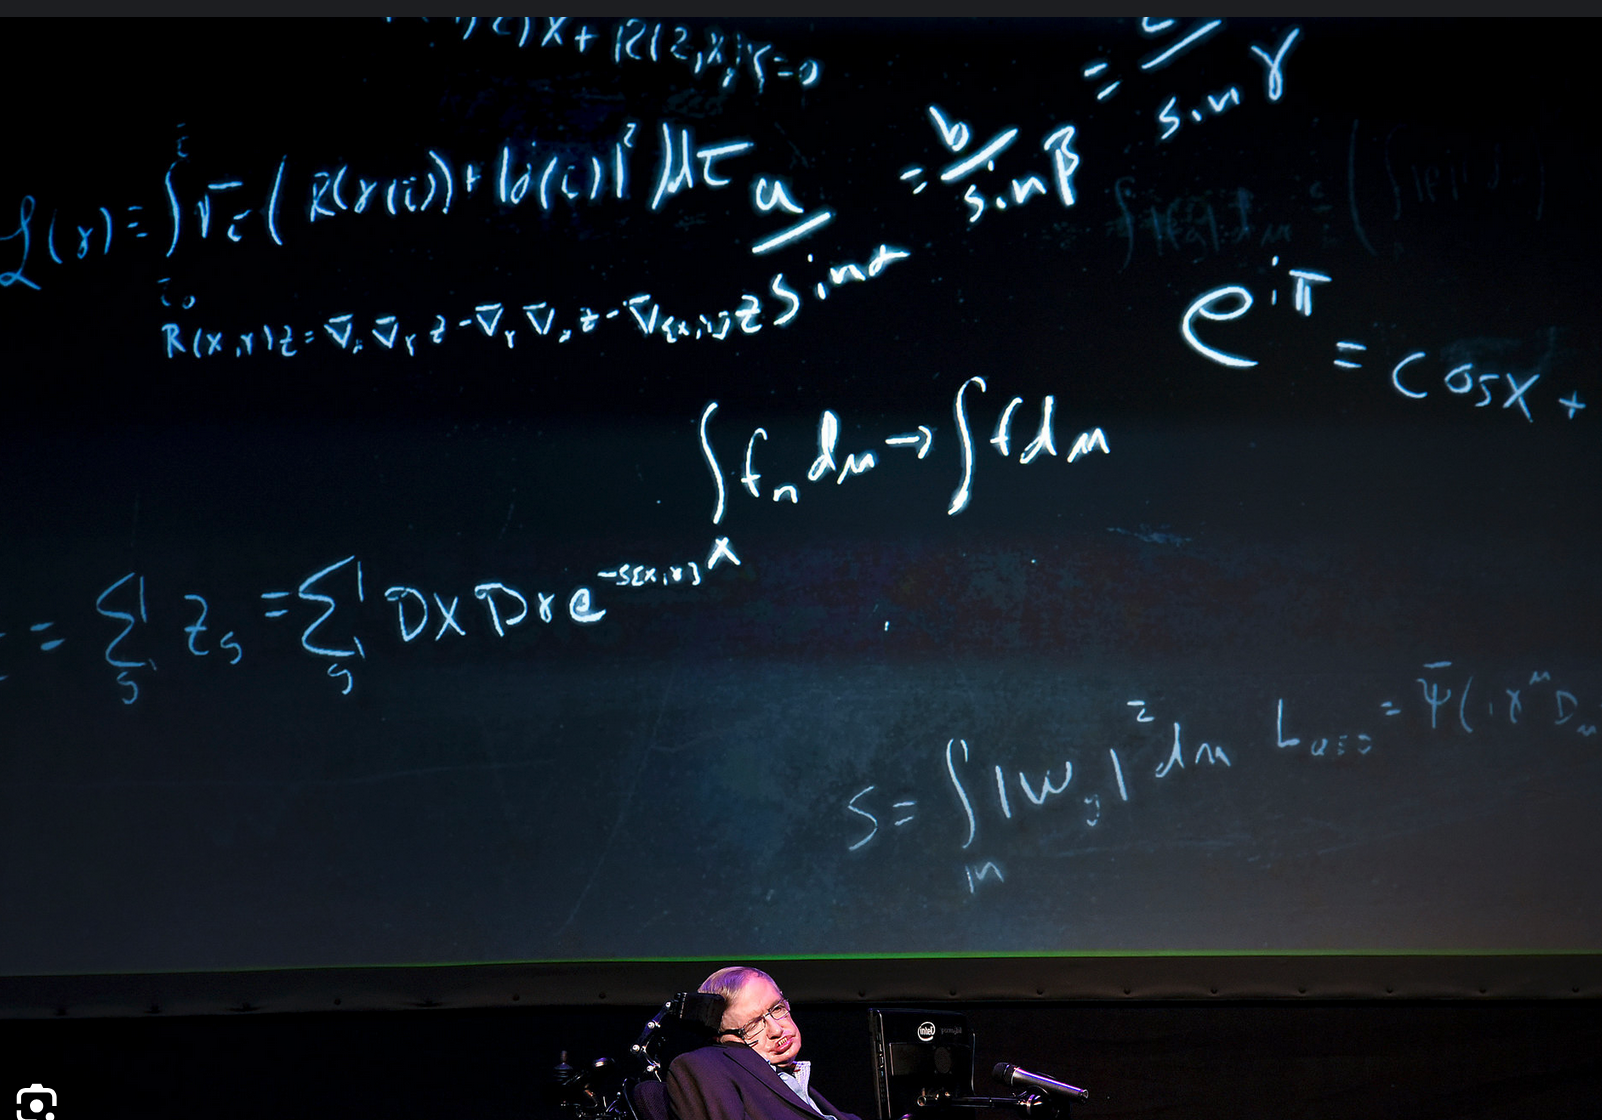 x + R(z,x)y = 0
L(γ) = ∫ √τ ( R(γ(τ)) + |γ̇(τ)|² ) dτ
a/sinα = b/sinβ = c/sinγ
R(x,y)z = ∇ₓ∇ᵧz - ∇ᵧ∇ₓz - ∇[x,y]z
e^iπ = cosx +
∫x fn dμ → ∫ f dμ
= Σg Zg = Σg DX Dγ e^-S[x,γ]
S = ∫m |Wg|² dμ
L QED = ψ̄(iγ^μ Dμ
intel